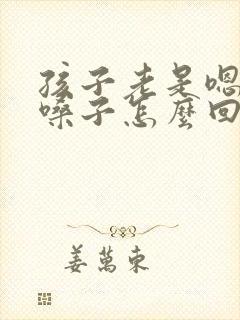 孩子老是嗯
嗓子怎麼回
姜萬東